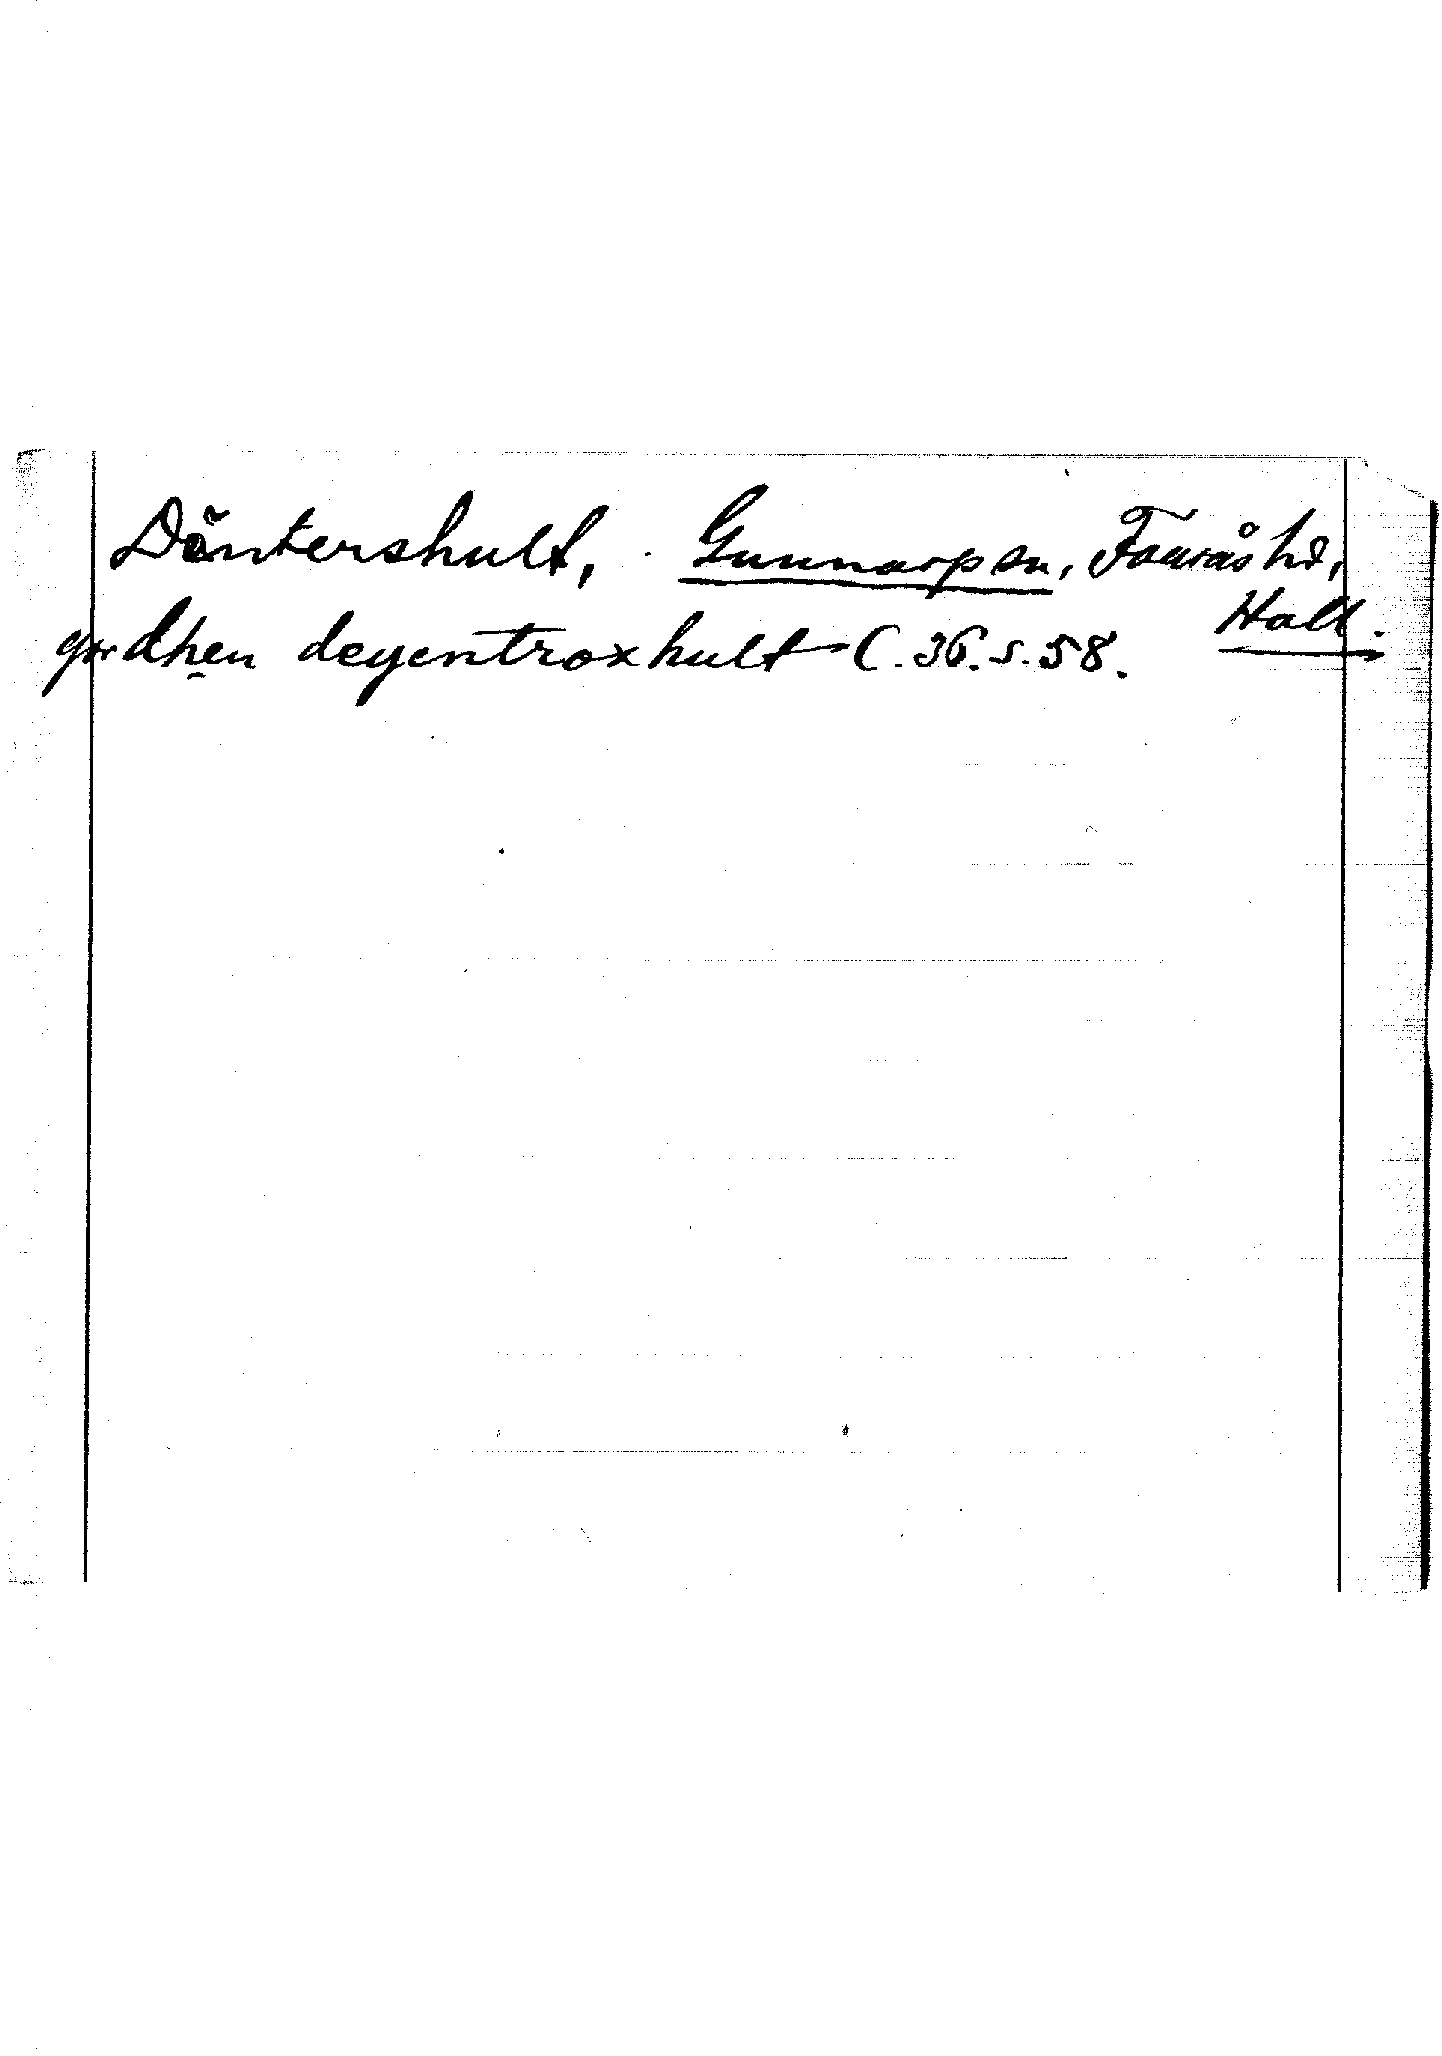 Döntershult, Gunnarp sn, Fauråshd,
Hall.
gardhen deyentroxhult C. 36. s. 58.